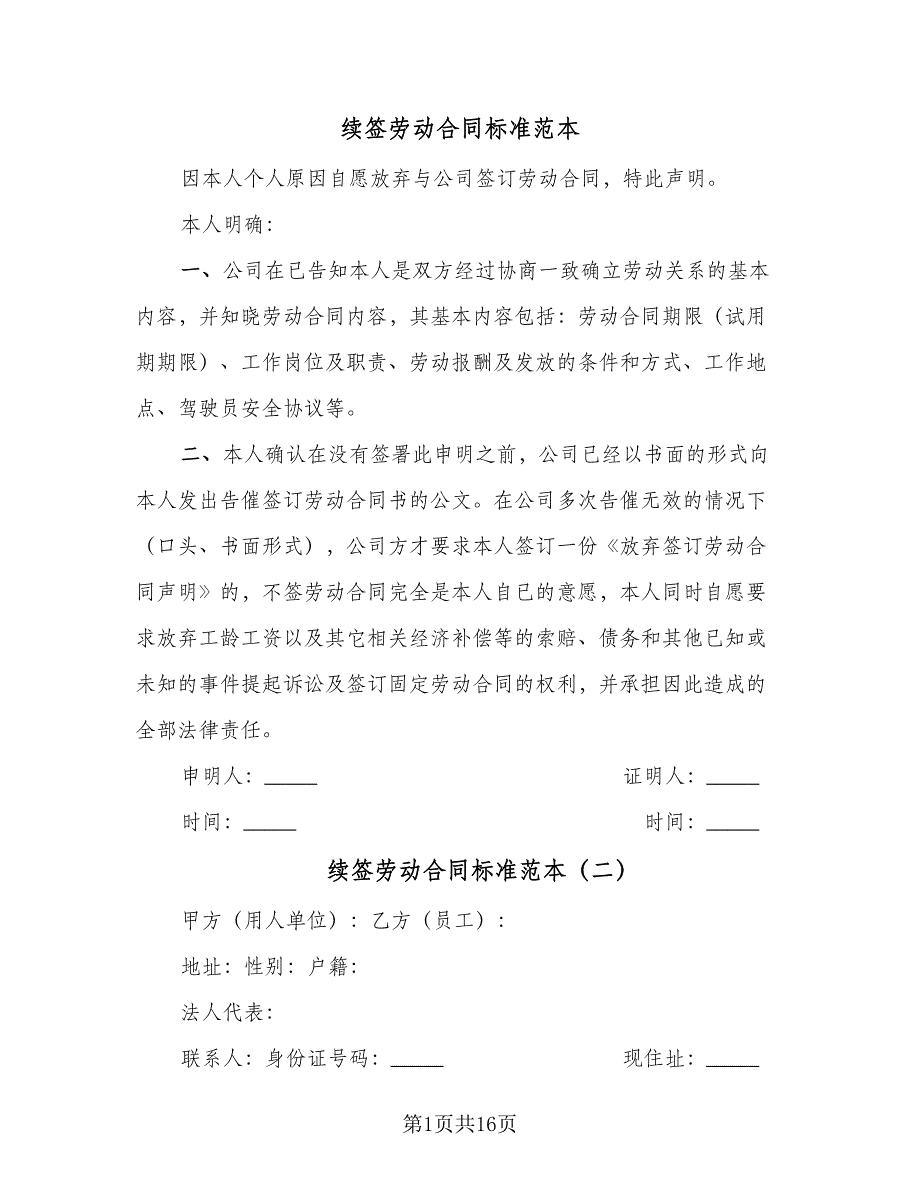 续签劳动合同标准范本
因本人个人原因自愿放弃与公司签订劳动合同，特此声明。
本人明确：
一、公司在已告知本人是双方经过协商一致确立劳动关系的基本
内容，并知晓劳动合同内容，其基本内容包括：劳动合同期限（试用
期期限）、工作岗位及职责、劳动报酬及发放的条件和方式、工作地
点、驾驶员安全协议等。
二、本人确认在没有签署此申明之前，公司已经以书面的形式向
本人发出告催签订劳动合同书的公文。在公司多次告催无效的情况下
（口头、书面形式），公司方才要求本人签订一份《放弃签订劳动合
同声明》的，不签劳动合同完全是本人自已的意愿，本人同时自愿要
求放弃工龄工资以及其它相关经济补偿等的索赔、债务和其他已知或
未知的事件提起诉讼及签订固定劳动合同的权利，并承担因此造成的
全部法律责任。
申明人：_____ 证明人：_____
时间：_____ 时间：_____
续签劳动合同标准范本（二）
甲方（用人单位）：乙方（员工）：
地址：性别：户籍：
法人代表：
联系人：身份证号码：_____ 现住址：_____
第1页共16页